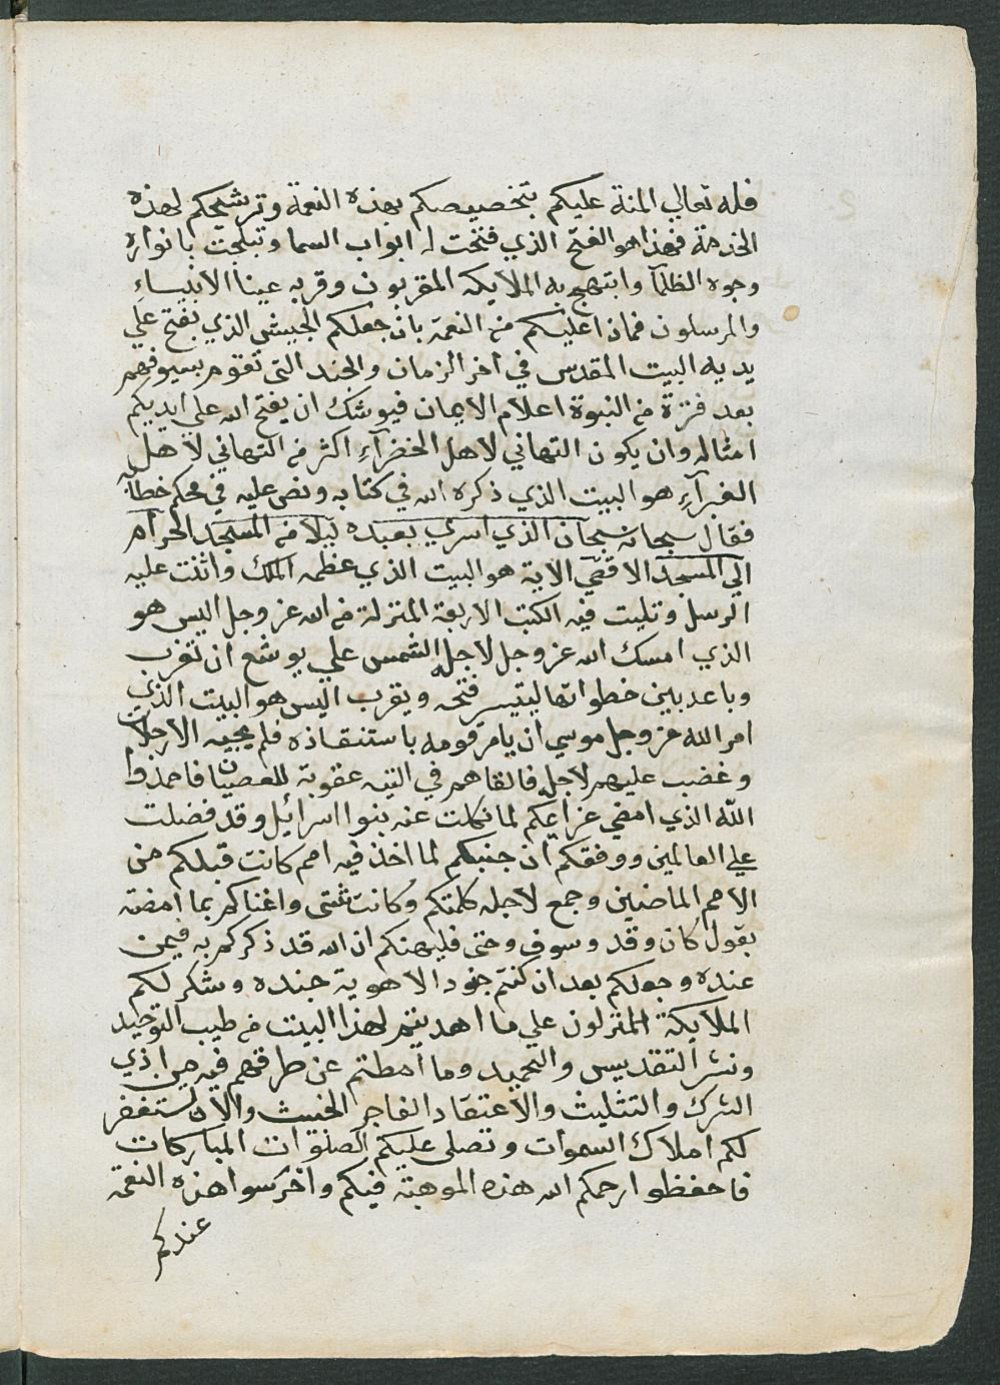 فله تعالي المنة عليكم بتخصيصكم بهذه النعمة وترشيحكم لهذه
الخدمة فهذا هو الفتح الذي فتحت له ابواب السما وتبلجت بانواره
وجوه الظلمآ وابتهج به الملايكه المقربون وقر به عينا الانبياءِ
والمرسلون فماذا عليكم من النعمة بان جعلكم الجيش الذي يفتح علي
يديه البيت المقدس في اخر الزمان والجند التي تقوم بسيوفهم
بعد فترة من النبوة اعلام الايمان فيوشك ان يفتح الله علي ايديكم
امثاله وان يكون التهاني لاهل الخضرآءِ اكثر من التهاني لاهل
الغبرآءِ هو البيت الذي ذكره الله في كتابه ونص عليه في محكم خطابه
فقال سبحانه سبحان الذي اسري بعبده ليلا من المسجد الحرام
الي المسجد الاقصي الاية هو البيت الذي عظمه الملك واثنت عليه
الرسل وتليت فيه الكتب الاربعة المنزلة من الله عز وجل اليس هو
الذي امسك الله عز وجل لاجله الشمس علي يوشع ان تغرب
وباعد بين خطواتها ليتيسر فتحه ويقرب اليس هو البيت الذي
امر الله عز وجل موسي ان يامر قومه باستنقاذه فلم يجبه الا رجلان
وغضب عليهم لاجله فالقاهم في التيه عقوبة للعصيان فاحمدوا
الله الذي امضي عزايمكم لما نكلت عنه بنوا اسرائيل وقد فضلت
علي العالمين ووفقكم ان جنبكم لما اخذ فيه امم كانت قبلكم من
الامم الماضين وجمع لاجله كلمتكم وكانت شتى واغناكم بما امضته
بقول كان وقد وسوف وحتى فليهنكم ان الله قد ذكركم به فيمن
عنده وجعلكم بعد ان كنتم جنود الاهوية جنده وشكر لكم
الملايكة المنزلون علي ما اهديتم لهذا البيت من طيب التوحيد
ونشر التقديس والتحميد وما امطتم عن طرقهم فيه من اذي
الشرك والتثليث والاعتقاد الفاجر الخبيث والان تستغفر
لكم املاك السموات وتصلي عليكم الصلوات المباركات
فاحفظوا رحمكم الله هذه الموهبة فيكم واحرسوا هذه النعمة
عندكم